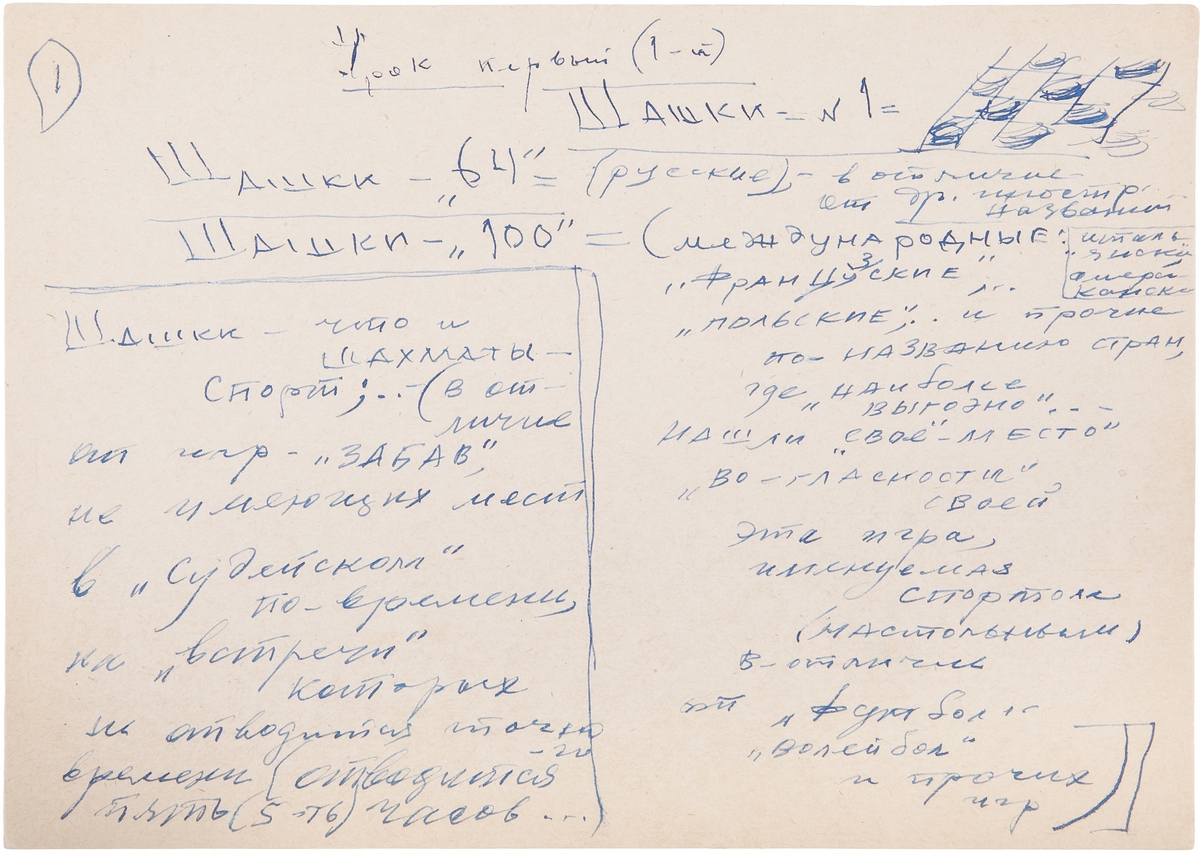 1
Урок первый (1-й)
Шашки = N 1 =
Шашки - „64" = (русские), - в отличие
от др. иностр.
названий
Шашки - „100" = (международные:
италь
янские
амери
кански
„Французские" ,...
„польские",.. и прочие
по - названию стран,
где „наиболее
выгодно"...
нашли „своё - место"
„во - гласности"
своей
эта игра,
именуемая
спортом
(настольным)
в - отличии
от „футбол
„волейбол"
и прочих
игр
Шашки - что и
шахматы -
спорт;..- (в от-
личие
от игр - „забав",
не имеющих мест
в „судейском"
по - времени,
на „встречи"
которых
не отводится точно
-го
времени (отводится
пять (5-ть) часов ...)